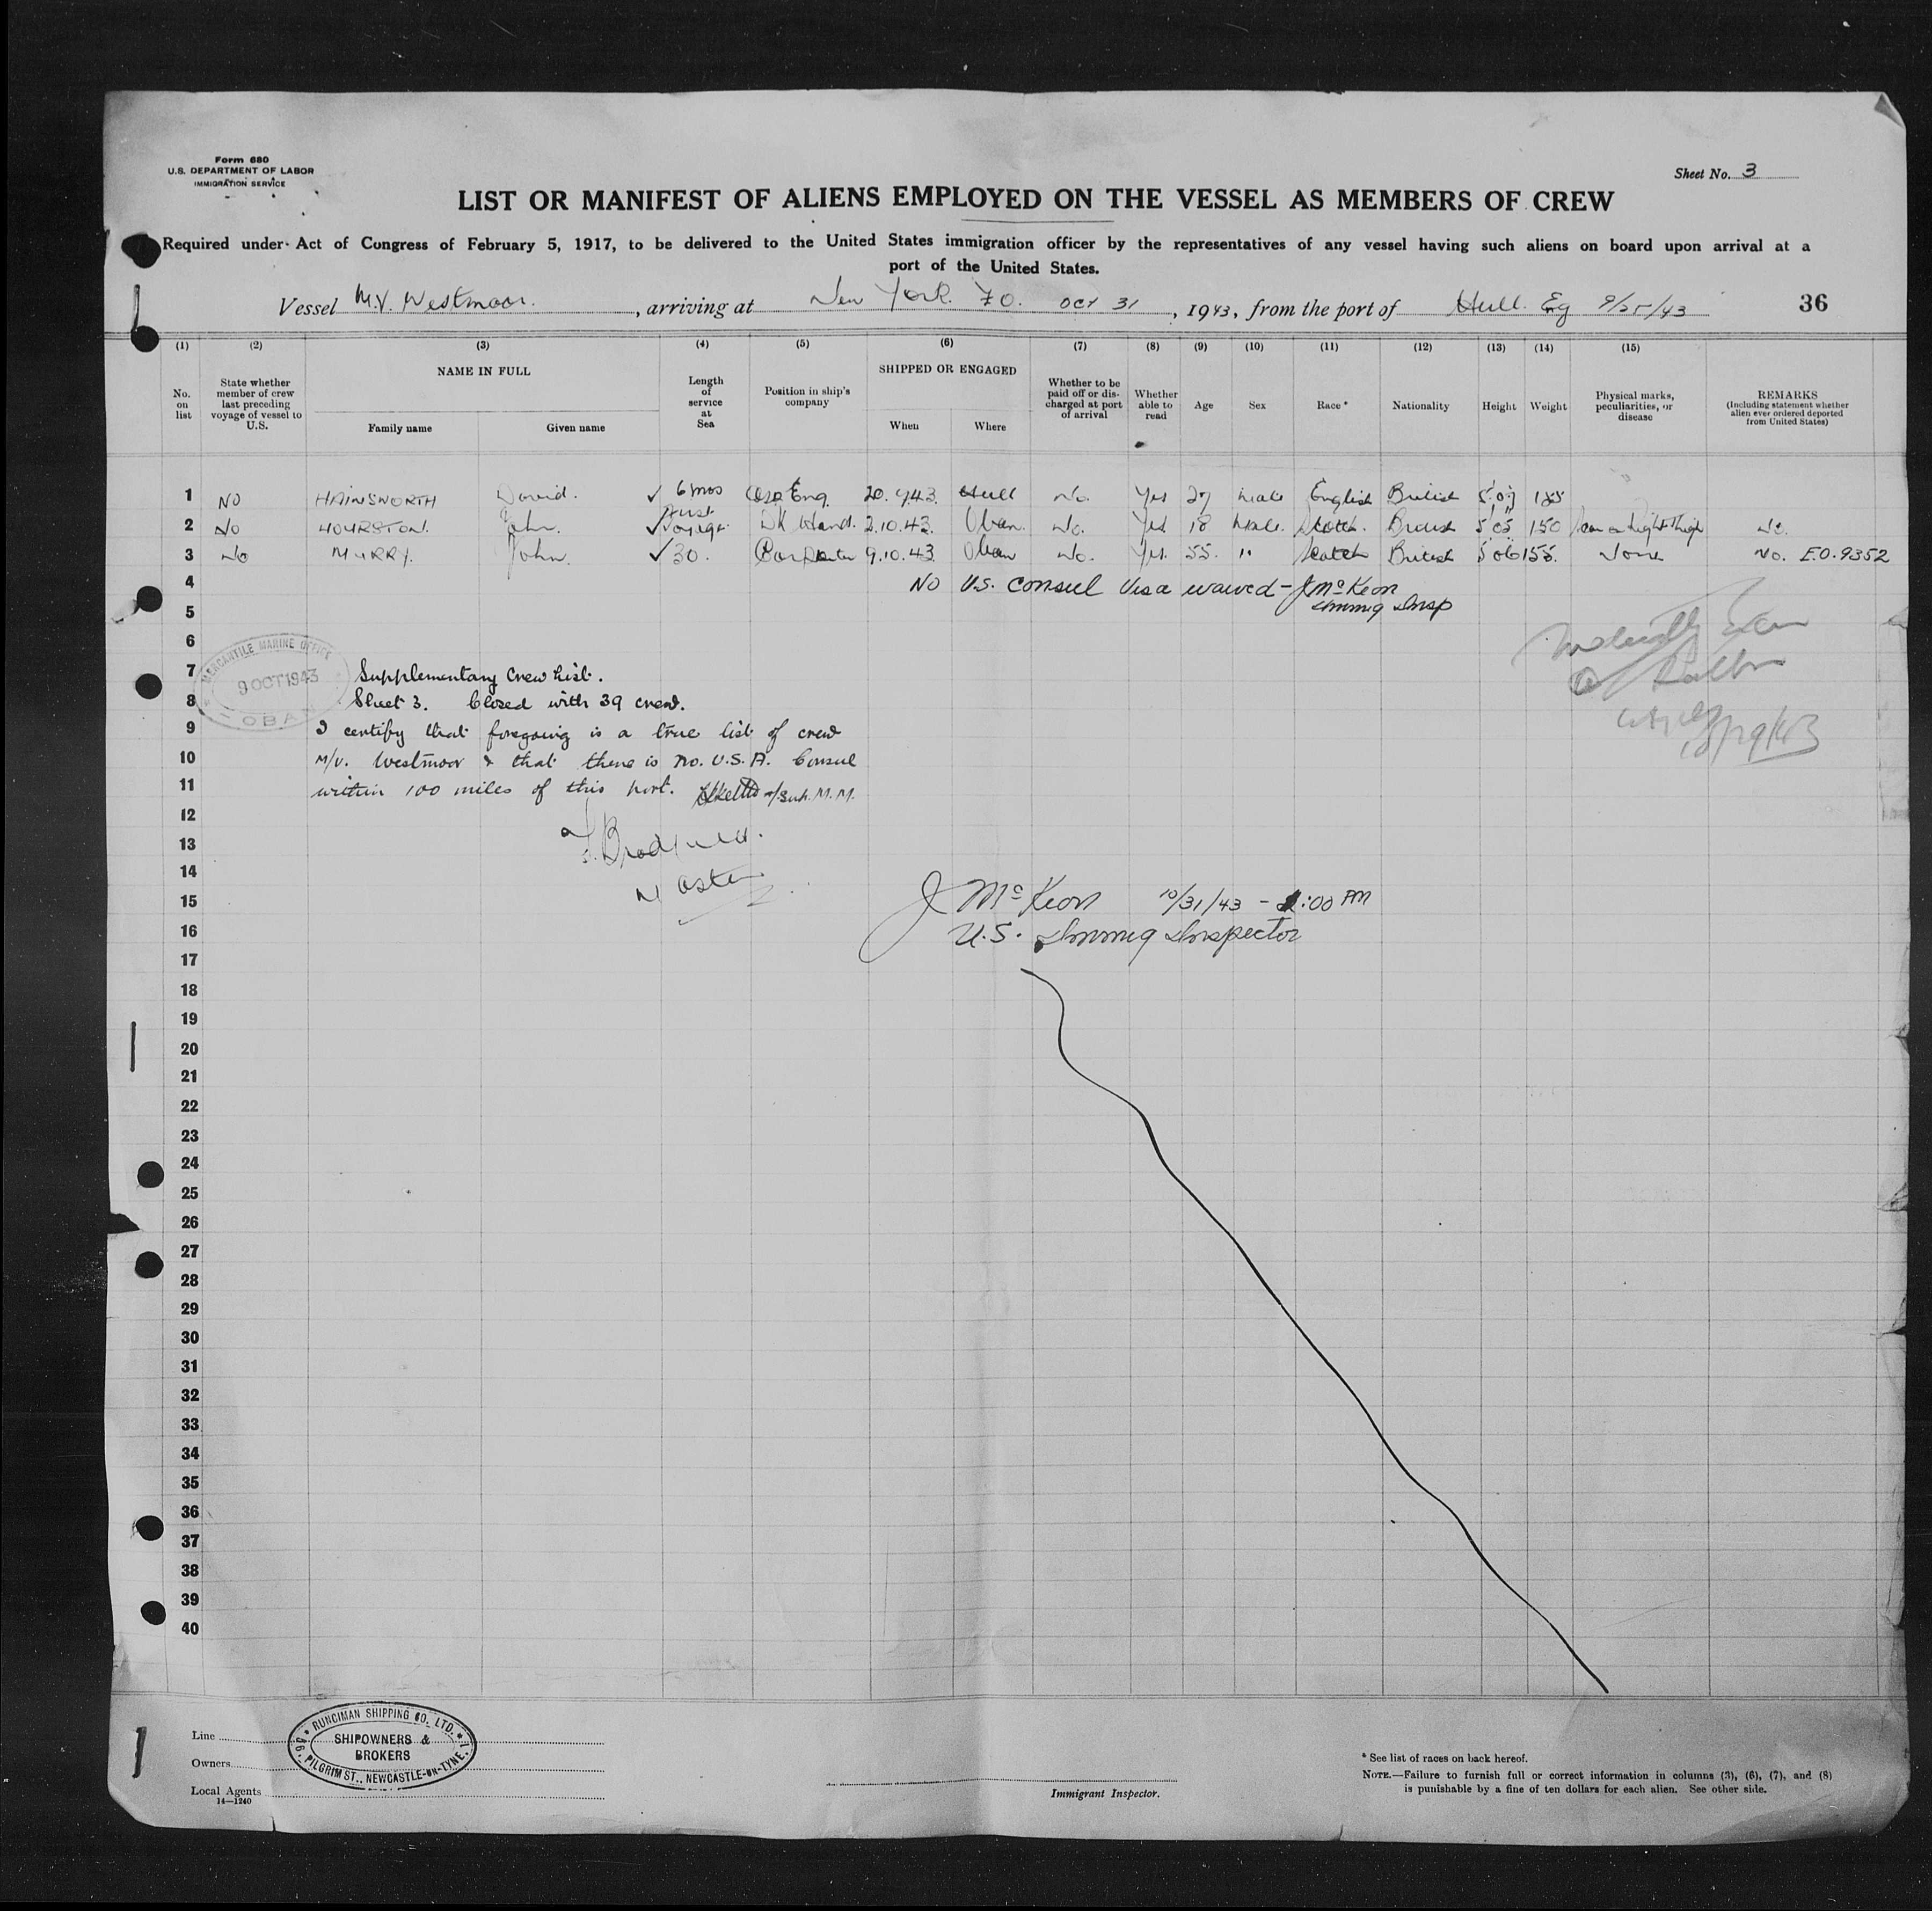 Form 680
U.S. DEPARTMENT OF LABOR
IMMIGRATION SERVICE
Sheet No. 3
LIST OR MANIFEST OF ALIENS EMPLOYED ON THE VESSEL AS MEMBERS OF CREW
Required under Act of Congress of February 5, 1917, to be delivered to the United States immigration officer by the representatives of any vessel having such aliens on board upon arrival at a
port of the United States.
Vessel M.V. Westmoor., arriving at New York. Oct 31, 1943, from the port of Hull. Eg 9/25/43 36
(1) (2) (3) (4) (5) (6) (7) (8) (9) (10) (11) (12) (13) (14) (15)
No. on list State whether member of crew last preceding voyage of vessel to U.S. NAME IN FULL Family name Given name Length of service at Sea Position in ship's company SHIPPED OR ENGAGED When Where Whether to be paid off or discharged at port of arrival Whether able to read Age Sex Race * Nationality Height Weight Physical marks, peculiarities, or disease REMARKS (Including statement whether alien ever ordered deported from United States)
1 No HAINSWORTH David. ✓ 6 mos Eng. Hull No. Yes 27 Male English British
2 No HOURSTON. John. ✓ First voyage. Dk Hand. 2.10.43. Oban. No. Yes 18 Male. Scotch. British 5'05" 150 Scar on Right Thigh No.
3 No MURRY. John. ✓ 30. Carpenter 9.10.43. Oban No. Yes. 55. " Scotch British 5 06 155. None No. E.O. 9352
4 No U.S. Consul Visa waived - J McKeon
5 Immig Insp
6
MERCANTILE MARINE OFFICE
9 OCT 1943
OBAN
7 Supplementary Crew List.
8 Sheet 3. Closed with 39 crew.
9 I certify that foregoing is a true list of crew
10 M/V. Westmoor & that there is no. U.S.A. Consul
11 within 100 miles of this port. M.M.
12
13
14 Master
15 J McKeon 10/31/43 - :00 PM
16 U.S. Immig Inspector
17
18
19
20
21
22
23
24
25
26
27
28
29
30
31
32
33
34
35
36
37
38
39
40
Line
Owners
Local Agents
14—1240
RUNCIMAN SHIPPING CO. LTD.
SHIPOWNERS &
BROKERS
PILGRIM ST., NEWCASTLE-ON-TYNE, 1
Immigrant Inspector.
* See list of races on back hereof.
NOTE.—Failure to furnish full or correct information in columns (3), (6), (7), and (8)
is punishable by a fine of ten dollars for each alien. See other side.